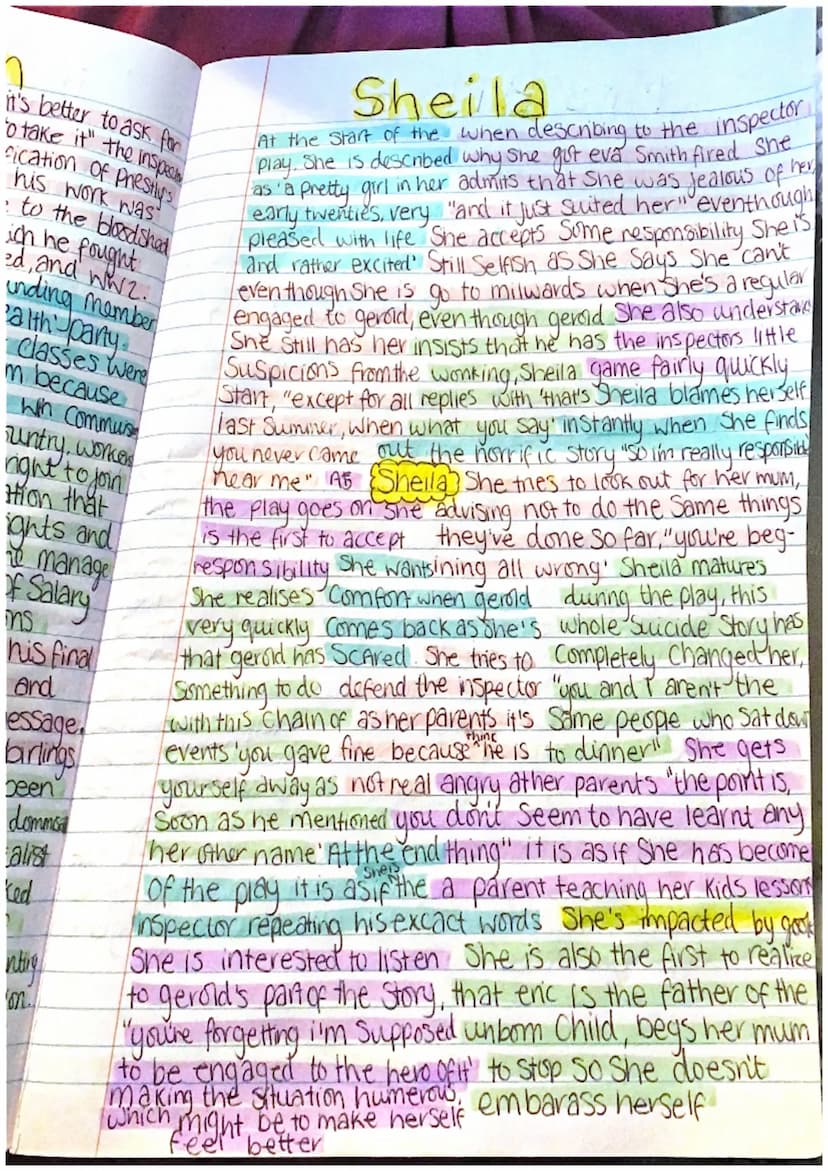 it's better to ask for
to take it" the
of Priestly's
his work was
to the bloodshed
he fought
and WW2.
member
party.
classes were
because
workers
to join
that
and
manage
of Salary
his final
and
birlings
been
Sheila
At the start of the
play. She is described
as 'a pretty girl in her
early twenties, very
pleased with life
and rather excited'
even though She is
engaged to gerold,
She still has her
Suspicions from the
Start, "except for all
last Summer, when
you never came
near me" As
Sheila
the play goes on She
is the first to accept
responsibility
She realises
very quickly
that gerold has
Something to do
with this chain of
events 'you gave
yourself away as
Soon as he mentioned
her other name' At the end
of the play it is as if She's the
inspector repeating his excact words
She is interested to listen
to gerold's part of the Story,
"you're forgetting i'm Supposed
to be engaged to the hero of it'
making the situation humerous,
which might be to make herself
feel better
when describing to the inspector
why She got eva Smith fired She
admits that She was jealous of her
"and it just suited her" eventhough
She accepts Some responsibility She is
Still Selfish as She Says She can't
go to milwards when She's a regular
even though gerold
insists that he has
working, Sheila
replies with 'that's
what you say'
She also understands
the inspectors little
game fairly quickly
Sheila blames herself
instantly when She finds
out the horrific Story "So i'm really responsible
She tries to look out for her mum,
advising not to do the Same things
they've done So far, "you're beg-
ining all wrong'
She wants
Comfort when gerold
comes back as She's
Scared. She tries to
defend the inspector
as her parents it's
fine because thinc he is
not real
Sheila matures
during the play, this
whole Suicide Story has
Completely Changed her,
"you and I aren't the
Same people who Sat down
to dinner" She gets
angry at her parents "the point is,
you don't Seem to have learnt any
thing" it is as if She has become
a parent teaching her kids lesson
She's impacted by
She is also the first to realize
that eric is the father of the
unborn Child, begs her mum
to Stop So She doesn't
embarass herself